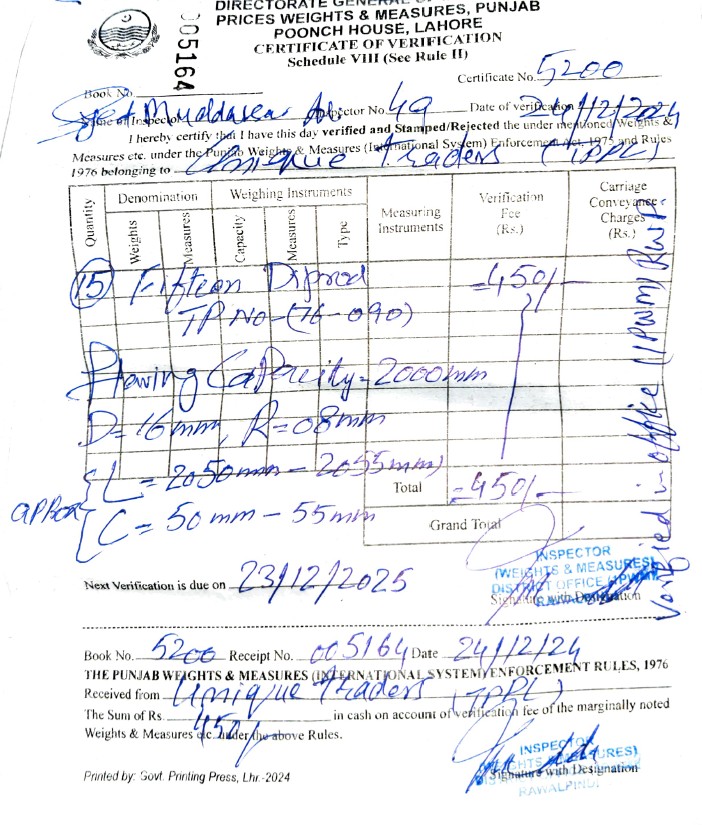 DIRECTORATE GENERAL OF
PRICES WEIGHTS & MEASURES, PUNJAB
POONCH HOUSE, LAHORE
CERTIFICATE OF VERIFICATION
Schedule VIII (See Rule II)
005164
Certificate No. 5200
Book No.
Name of Inspector Syed Muddassar Ali Inspector No. 49 Date of verification 24/12/2024
I hereby certify that I have this day verified and Stamped/Rejected the under mentioned Weights &
Measures etc. under the Punjab Weights & Measures (International System) Enforcement Act, 1975 and Rules
1976 belonging to Unique Traders (TPPL)
Quantity Denomination Weighing Instruments Measuring Instruments Verification Fee (Rs.) Carriage Conveyance Charges (Rs.)
Weights Measures Capacity Measures Type
15 Fifteen Diprod =450/-
TP No-(76-090)
Capacity=2000mm
D=16mm, R=08mm
L = 2050mm - 2055mm)
approx
C = 50mm - 55mm
Total =450/-
Grand Total
Verified in office (IPWM) RWP
Next Verification is due on 23/12/2025
INSPECTOR
(WEIGHTS & MEASURES)
DISTRICT OFFICE (IPWM)
RAWALPINDI
Signature with Designation
Book No. 5200 Receipt No. 005164 Date 24/12/24
THE PUNJAB WEIGHTS & MEASURES (INTERNATIONAL SYSTEM) ENFORCEMENT RULES, 1976
Received from Unique Traders (TPPL)
The Sum of Rs. 450/- in cash on account of verification fee of the marginally noted
Weights & Measures etc. under the above Rules.
INSPECTOR
(WEIGHTS & MEASURES)
Signature with Designation
RAWALPINDI
Printed by: Govt. Printing Press, Lhr.-2024